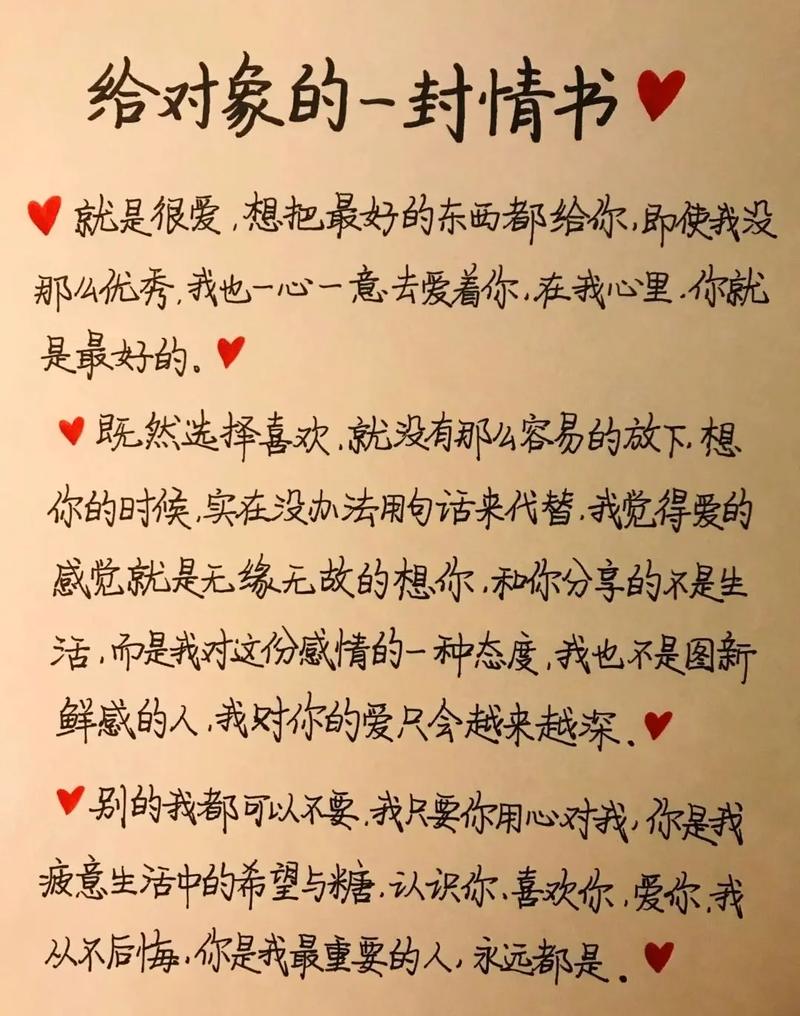 给对象的一封情书
就是很爱,想把最好的东西都给你,即使我没
那么优秀,我也一心一意去爱着你,在我心里.你就
是最好的。
既然选择喜欢.就没有那么容易的放下.想
你的时候,实在没办法用句话来代替.我觉得爱的
感觉就是无缘无故的想你,和你分享的不是生
活,而是我对这份感情的一种态度,我也不是图新
鲜感的人,我对你的爱只会越来越深.
别的我都可以不要.我只要你用心对我,你是我
疲意生活中的希望与糖.认识你.喜欢你,爱你.我
从不后悔.你是我最重要的人,永远都是.